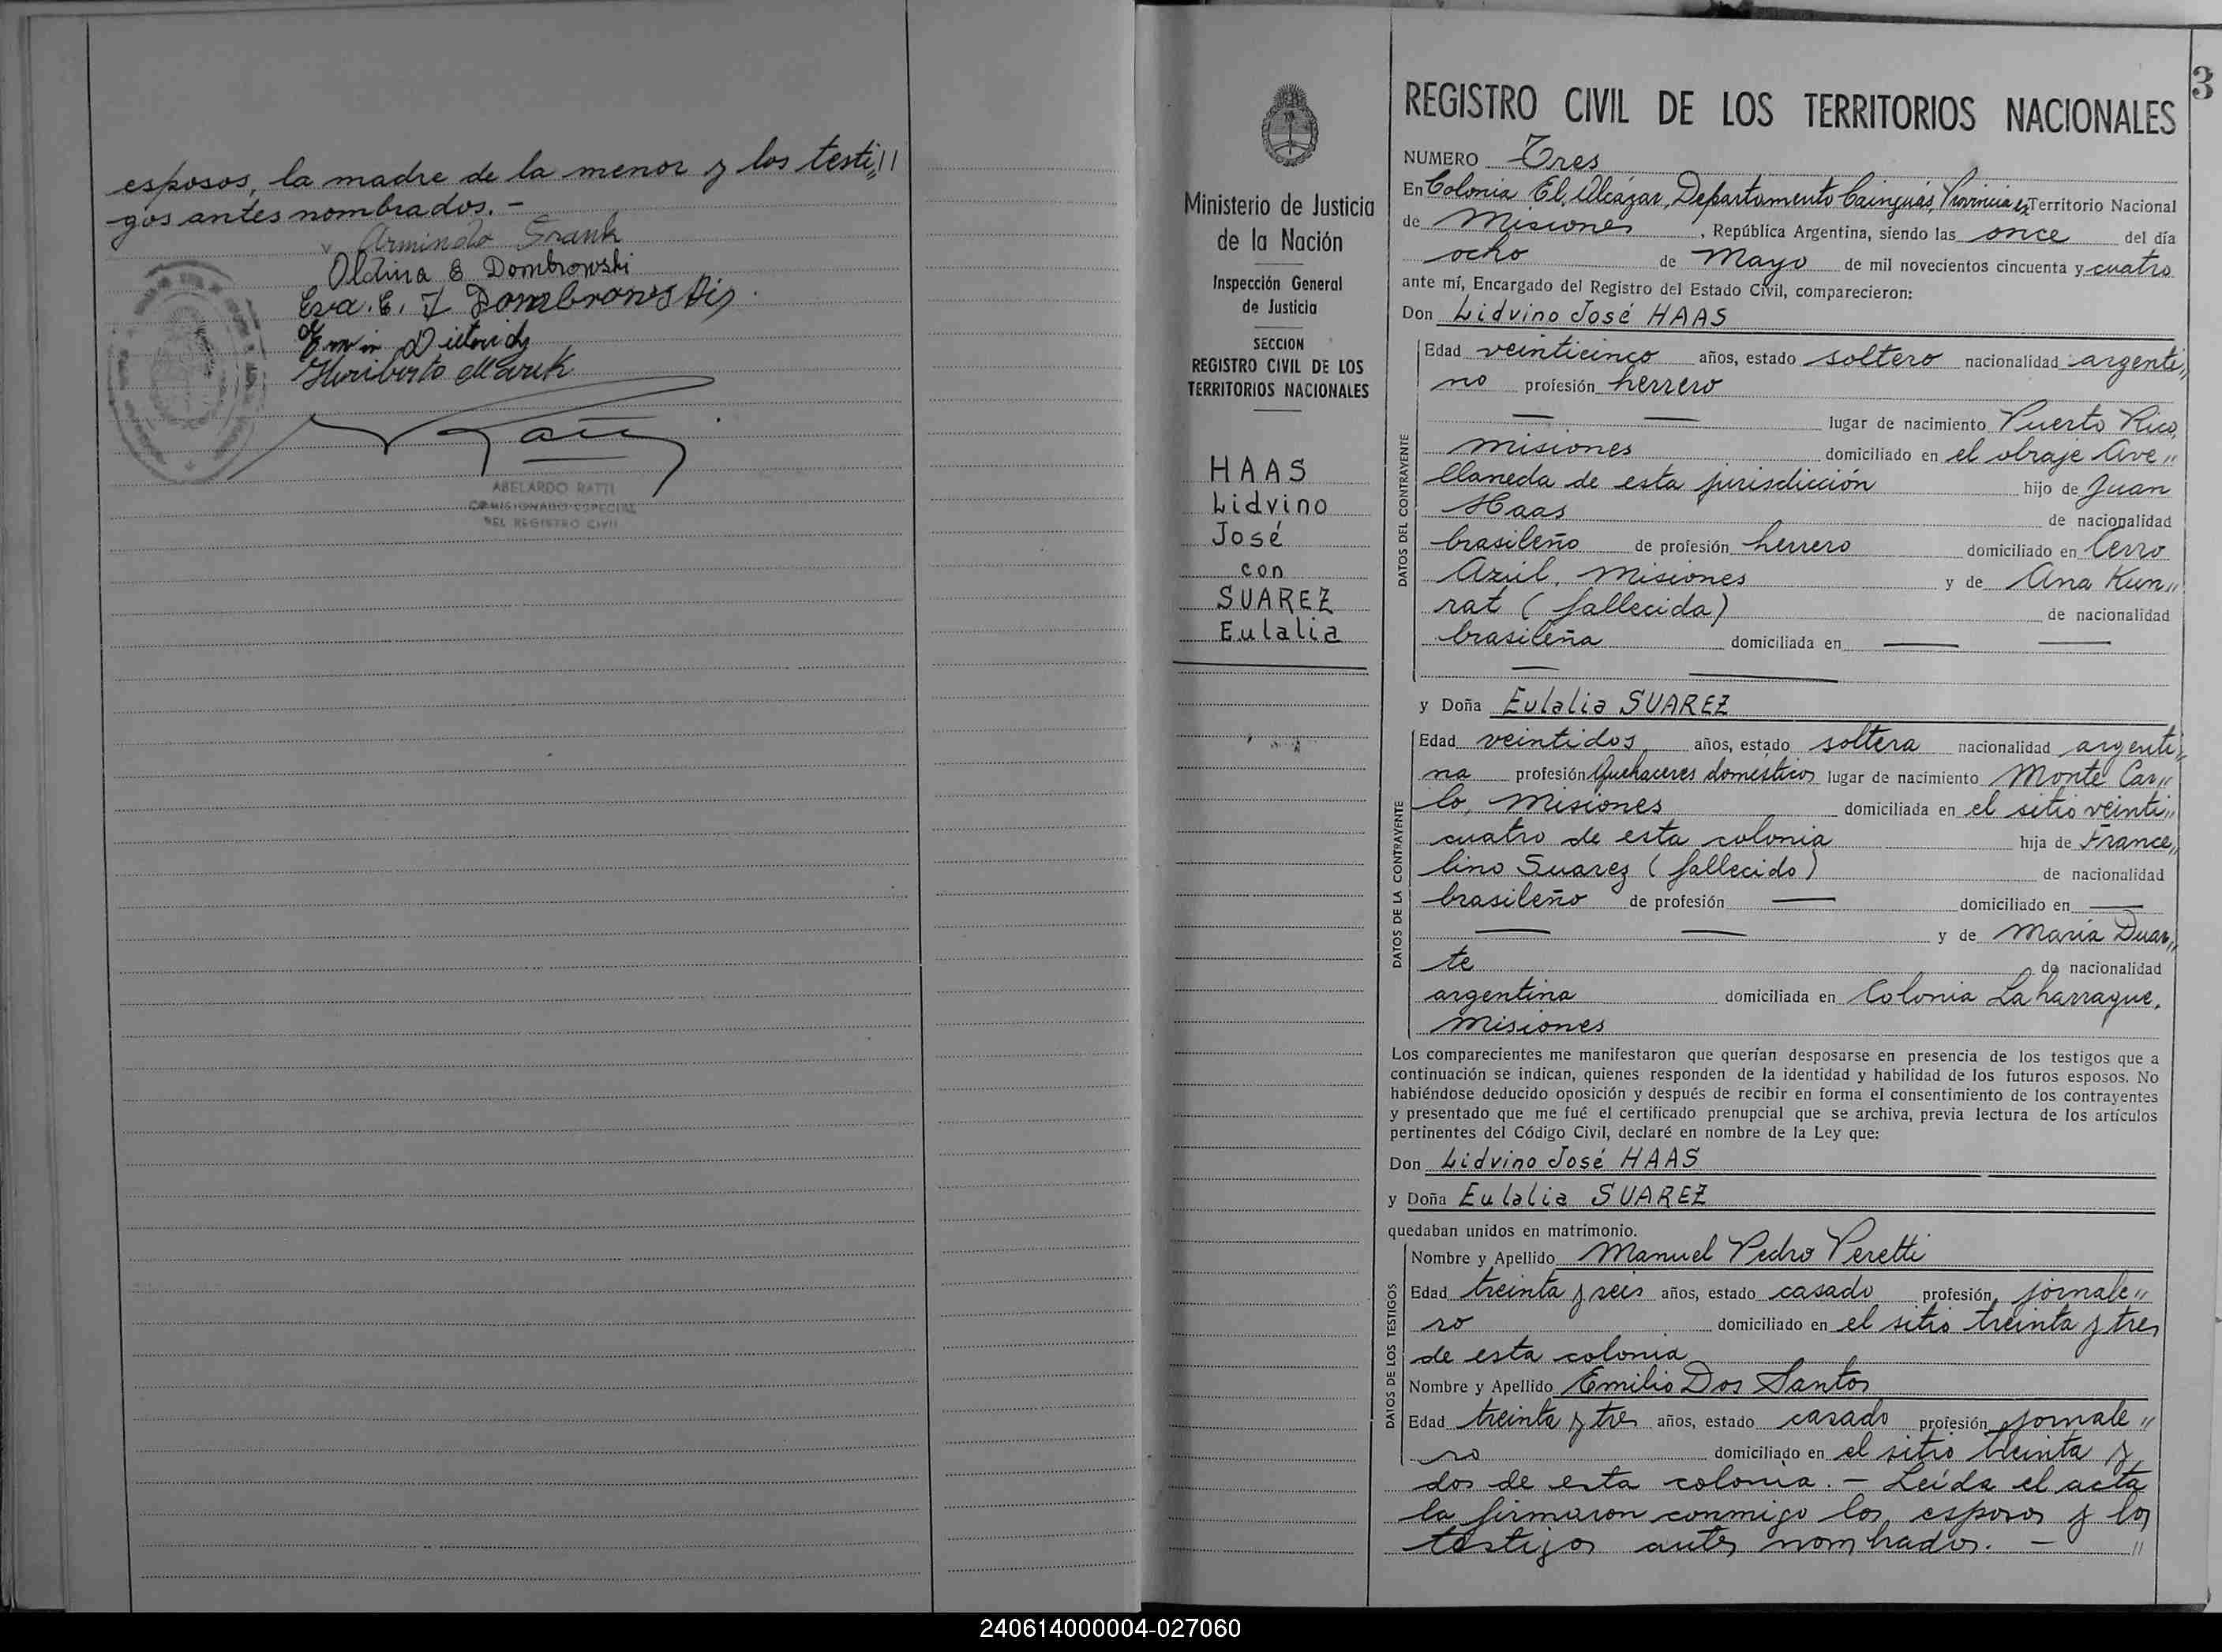 esposos, la madre de la menor y los testi,,//
gos antes nombrados.-
Armindo Frank
Oldina E Dombrowski
Eva. E.
Erwin Dietrich
Heriberto Mark
ABELARDO RATTI
COMISIONADO ESPECIAL
DEL REGISTRO CIVIL
3
Ministerio de Justicia
de la Nación
Inspección General
de Justicia
SECCION
REGISTRO CIVIL DE LOS
TERRITORIOS NACIONALES
HAAS
Lidvino
José
con
SUAREZ
Eulalia
REGISTRO CIVIL DE LOS TERRITORIOS NACIONALES
NUMERO Tres
En Colonia El Alcázar, Departamento Cainguás, Provincia ex Territorio Nacional
de Misiones, República Argentina, siendo las once del día
ocho de Mayo de mil novecientos cincuenta y cuatro
ante mí, Encargado del Registro del Estado Civil, comparecieron:
Don Lidvino José HAAS
DATOS DEL CONTRAYENTE
Edad veinticinco años, estado soltero nacionalidad argenti,,
no profesión herrero
— — lugar de nacimiento Puerto Rico,
Misiones domiciliado en el obraje Ave,,
llaneda de esta jurisdicción hijo de Juan
Haas de nacionalidad
brasileño de profesión herrero domiciliado en Cerro
Azúl, Misiones y de Ana Kun,,
rat (fallecida) de nacionalidad
brasileña domiciliada en — —
— —
y Doña Eulalia SUAREZ
DATOS DE LA CONTRAYENTE
Edad veintidos años, estado soltera nacionalidad argenti,,
na profesión Quehaceres domésticos lugar de nacimiento Monte Car,,
lo, Misiones domiciliada en el sitio veinti,,
cuatro de esta colonia hija de France,,
lino Suarez (fallecido) de nacionalidad
brasileño de profesión — domiciliado en —
— — y de María Duar,,
te de nacionalidad
argentina domiciliada en Colonia Laharrague,
Misiones
Los comparecientes me manifestaron que querían desposarse en presencia de los testigos que a
continuación se indican, quienes responden de la identidad y habilidad de los futuros esposos. No
habiéndose deducido oposición y después de recibir en forma el consentimiento de los contrayentes
y presentado que me fué el certificado prenupcial que se archiva, previa lectura de los artículos
pertinentes del Código Civil, declaré en nombre de la Ley que:
Don Lidvino José HAAS
y Doña Eulalia SUAREZ
quedaban unidos en matrimonio.
DATOS DE LOS TESTIGOS
Nombre y Apellido Manuel Pedro Peretti
Edad treinta y seis años, estado casado profesión jornale,,
ro domiciliado en el sitio treinta y tres
de esta colonia
Nombre y Apellido Emilio Dos Santos
Edad treinta y tres años, estado casado profesión jornale,,
ro domiciliado en el sitio treinta y
dos de esta colonia.- Leída el acta
la firmaron conmigo los esposos y los
testigos antes nombrados. - //
240614000004-027060